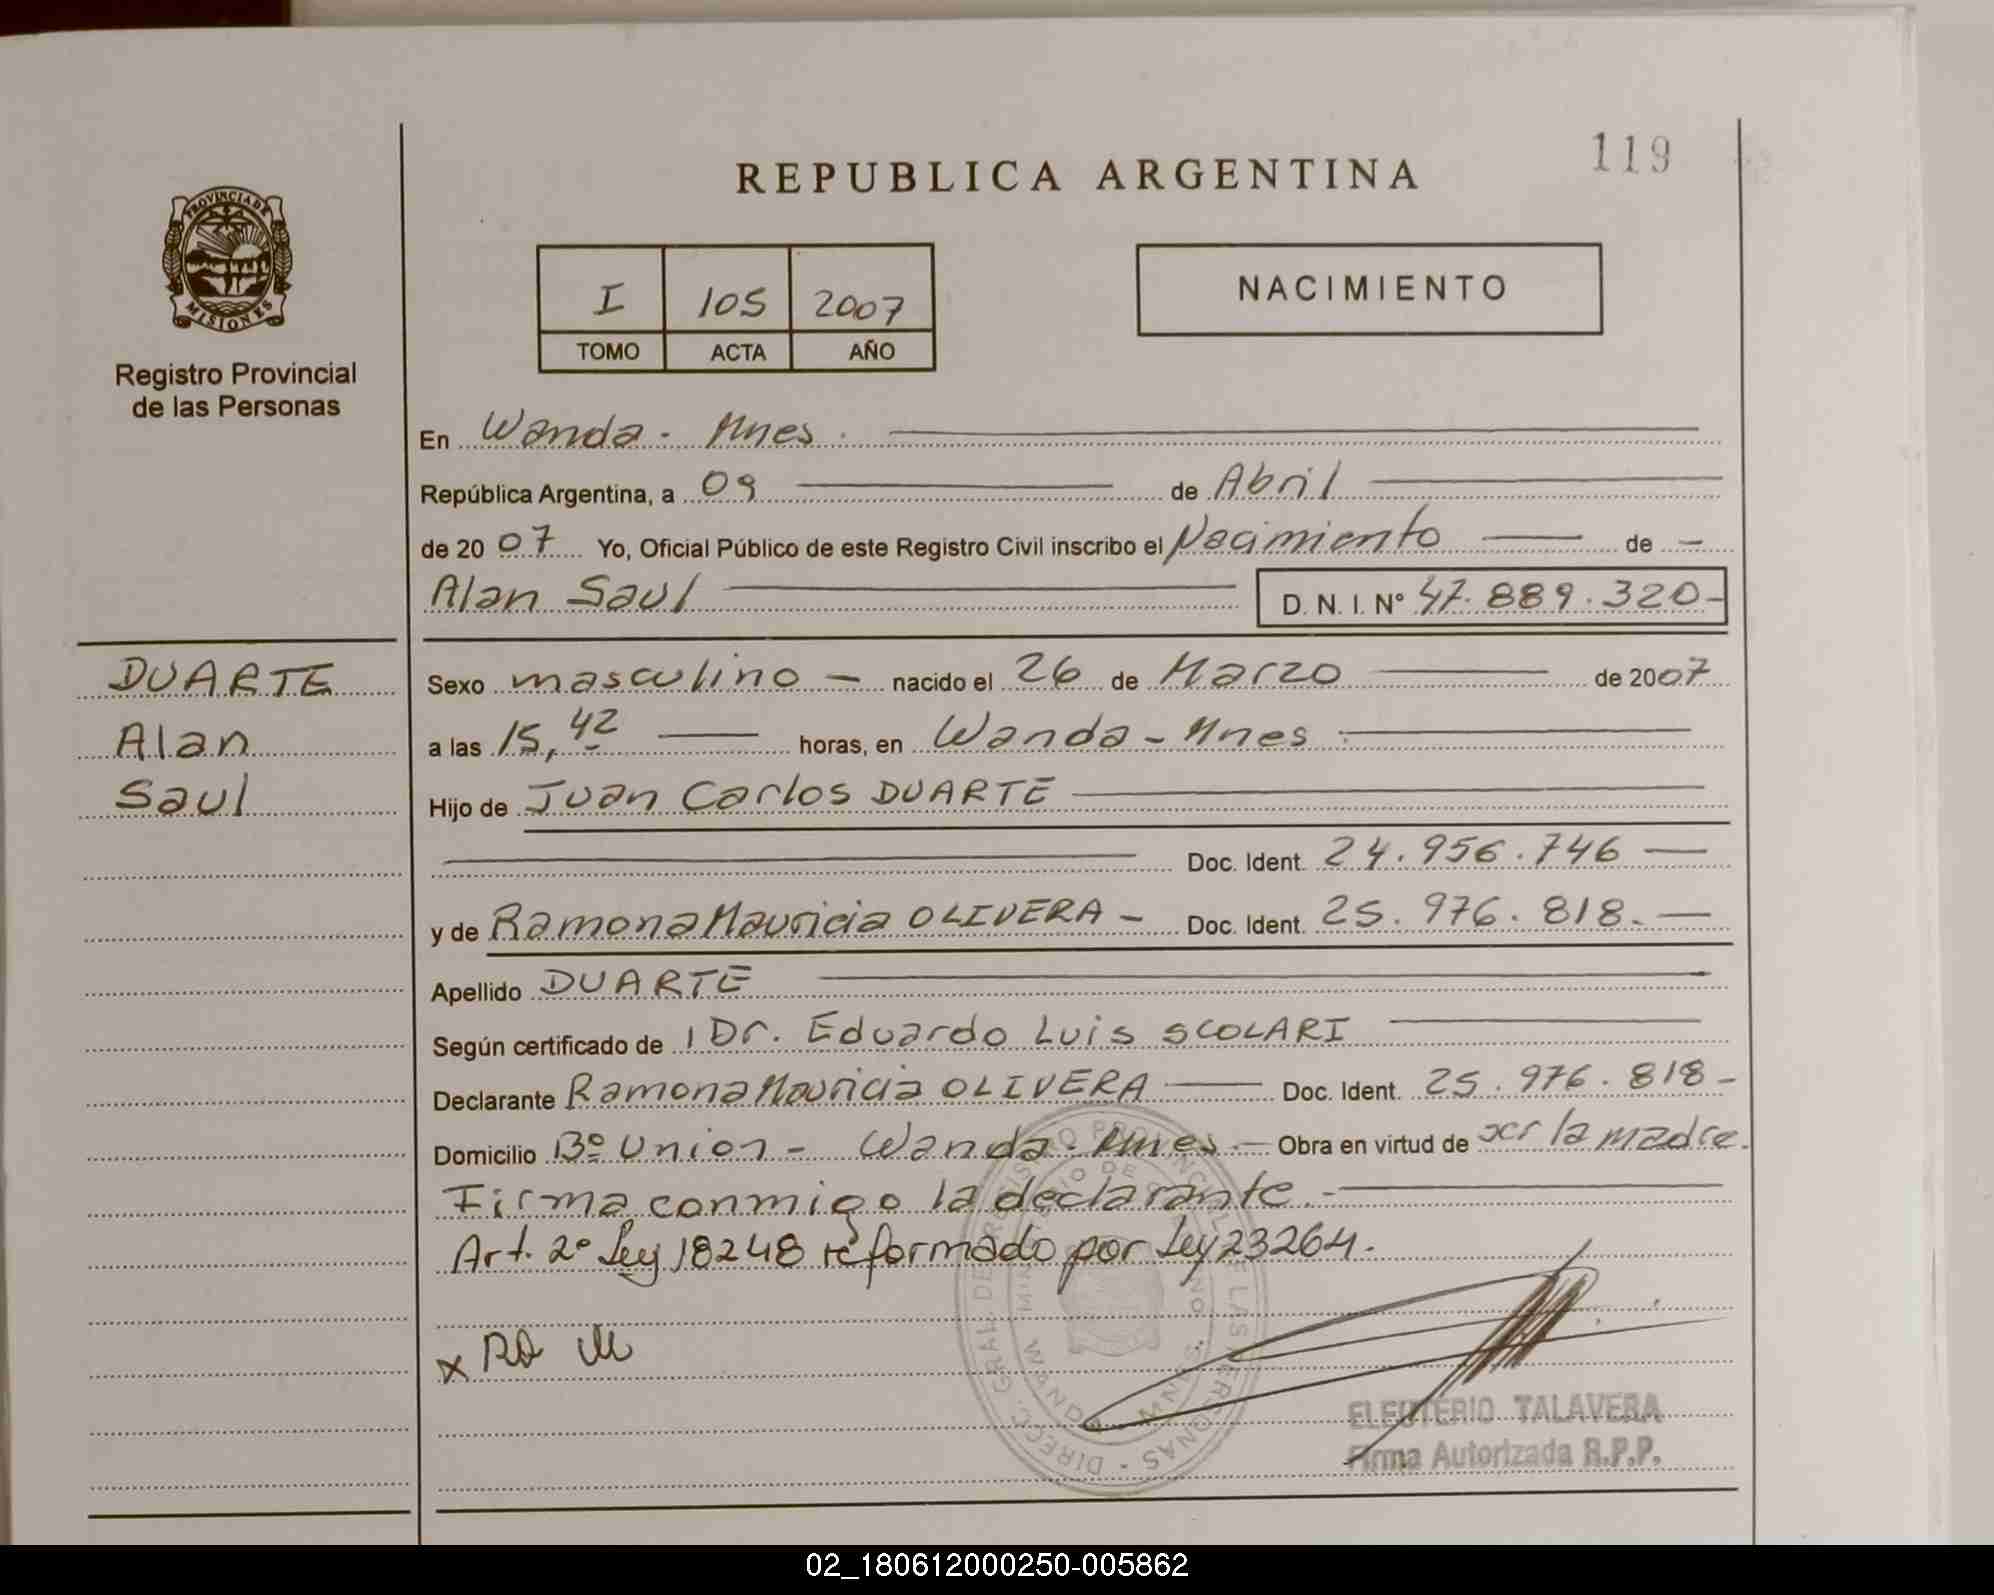 119
REPUBLICA ARGENTINA
PROVINCIA DE
MISIONES
Registro Provincial
de las Personas
I 105 2007
TOMO ACTA AÑO
NACIMIENTO
En Wanda - Mnes.
República Argentina, a 09 de Abril
de 2007 Yo, Oficial Público de este Registro Civil inscribo el Nacimiento de
Alan Saul D. N. I. N° 47.889.320-
DUARTE
Alan
Saul
Sexo masculino - nacido el 26 de Marzo de 2007
a las 15,42 horas, en Wanda - Mnes
Hijo de Juan Carlos DUARTE
Doc. Ident. 24.956.746
y de Ramona Mauricia OLIVERA - Doc. Ident. 25.976.818.
Apellido DUARTE
Según certificado de Dr. Eduardo Luis SCOLARI
Declarante Ramona Mauricia OLIVERA Doc. Ident. 25.976.818-
Domicilio Bº Union - Wanda - Mnes - Obra en virtud de ser la madre.
Firma conmigo la declarante.-
Art. 2º Ley 18248 reformado por Ley 23264.
ELEUTERIO TALAVERA
Firma Autorizada R.P.P.
02_180612000250-005862